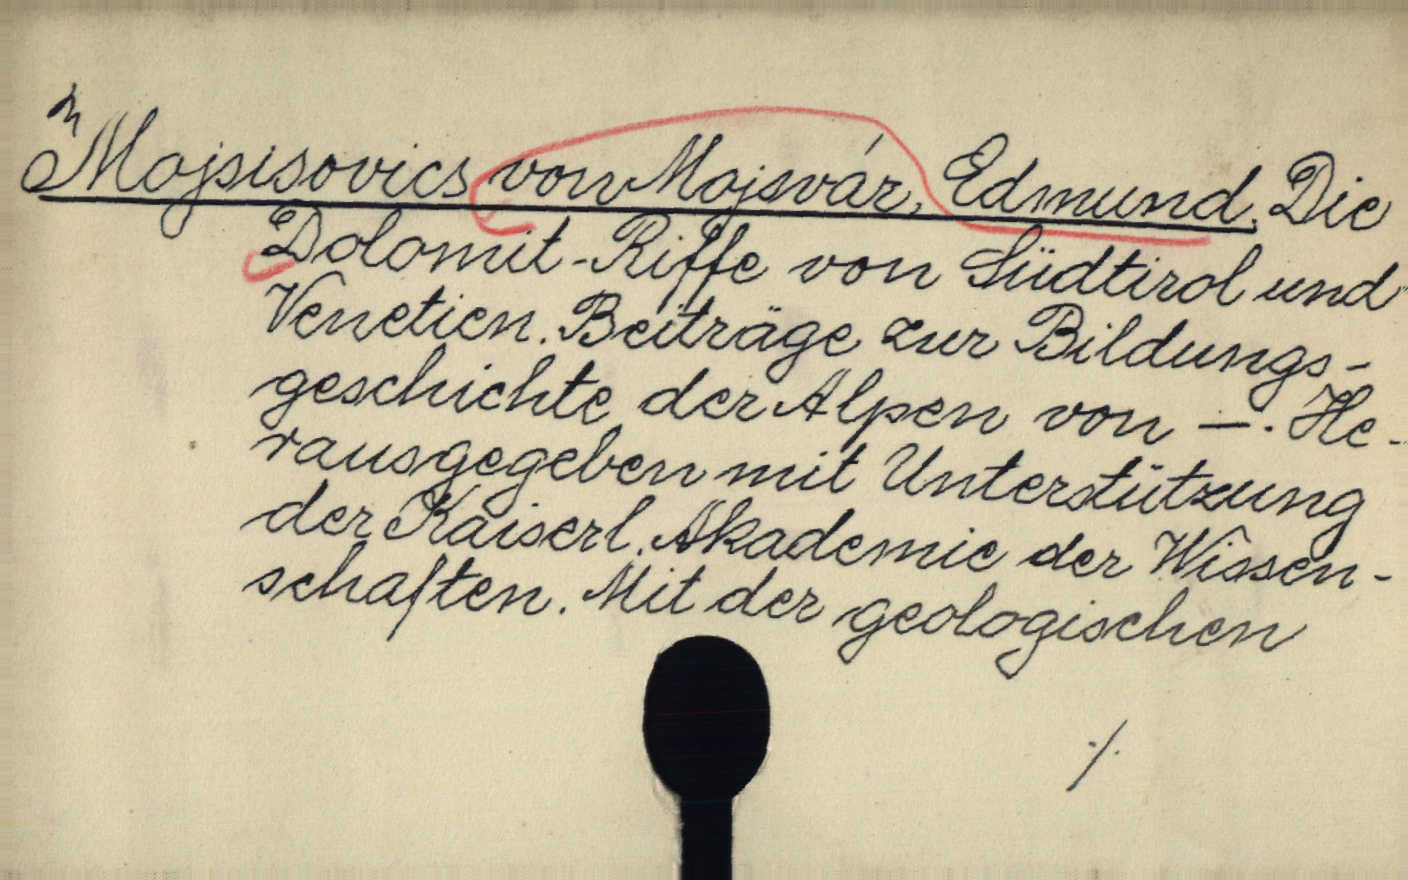 Mojsisovics von Mojsvár, Edmund. Die
Dolomit-Riffe von Südtirol und
Venetien. Beiträge zur Bildungs-
geschichte der Alpen von —. He-
rausgegeben mit Unterstützung
der Kaiserl. Akademie der Wissen-
schaften. Mit der geologischen
./.